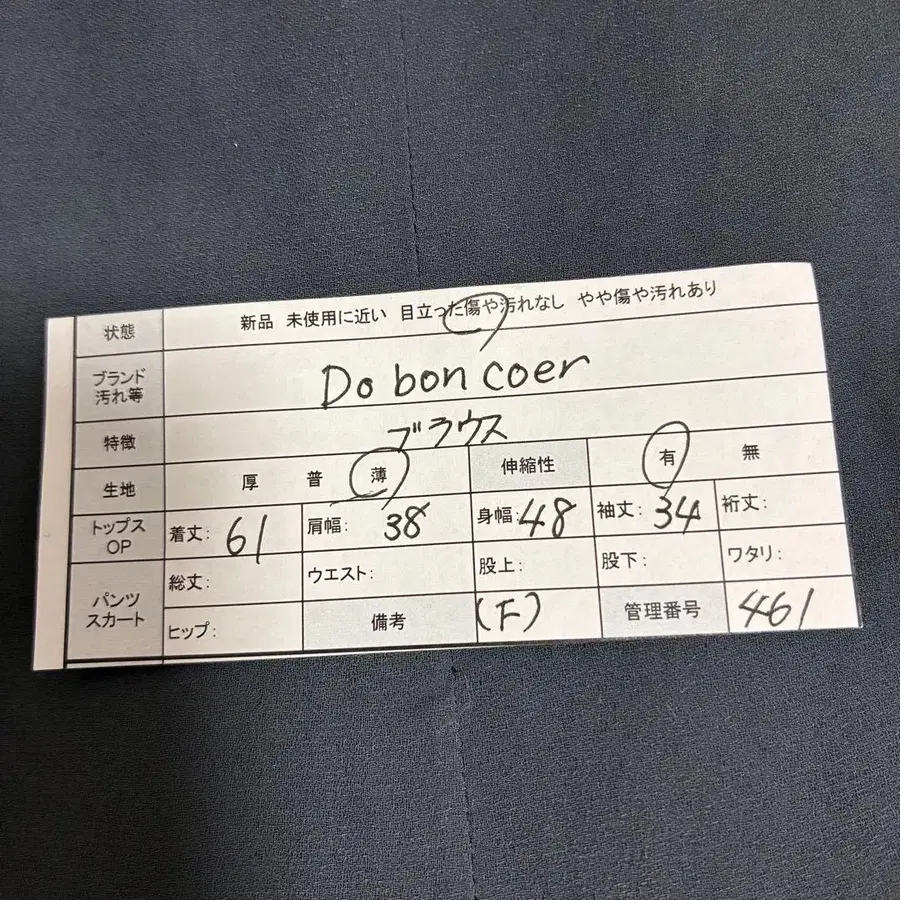 状態 新品 未使用に近い 目立った傷や汚れなし やや傷や汚れあり
ブランド
汚れ等
Do bon coer
特徴 ブラウス
生地 厚 普 薄 伸縮性 有 無
トップス
OP
着丈: 61 肩幅: 38 身幅: 48 袖丈: 34 裄丈:
パンツ
スカート
総丈: ウエスト: 股上: 股下: ワタリ:
ヒップ: 備考 (F) 管理番号 461